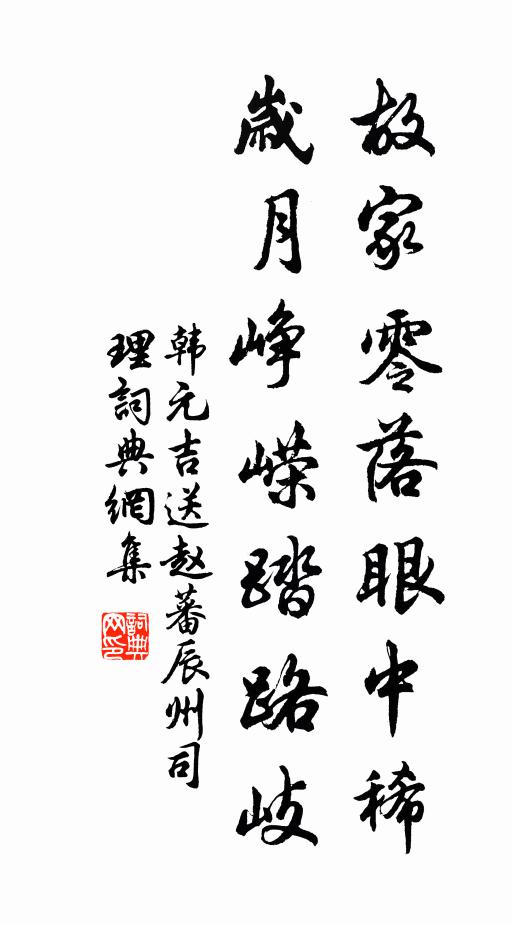 故家零落眼中稀
歲月峥嵘踏路歧
韩元吉送赵蕃辰州司
理詞典網集
詞典网印